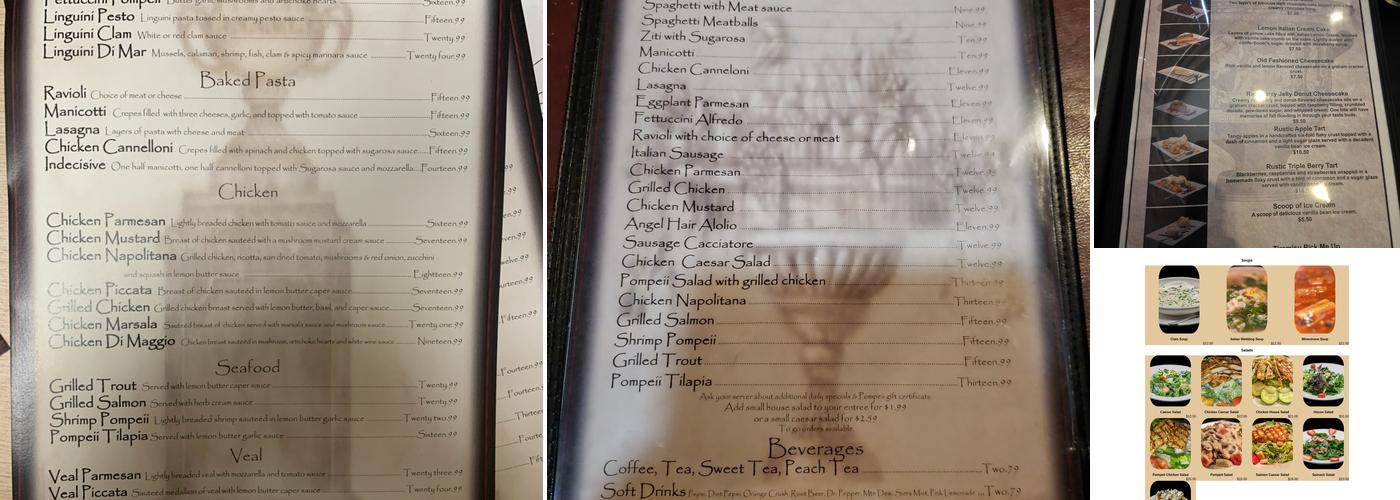 Fettuccini Pompeii Butter garlic mushrooms and artichoke hearts Sixteen.99
Linguini Pesto Linguini pasta tossed in creamy pesto sauce Fifteen.99
Linguini Clam White or red clam sauce Twenty.99
Linguini Di Mar Mussels, calamari, shrimp, fish, clam & spicy marinara sauce Twenty four.99
Baked Pasta
Ravioli Choice of meat or cheese Fifteen.99
Manicotti Crepes filled with three cheeses, garlic, and topped with tomato sauce Fifteen.99
Lasagna Layers of pasta with cheese and meat Sixteen.99
Chicken Cannelloni Crepes filled with spinach and chicken topped with sugarosa sauce Fifteen.99
Indecisive One half manicotti, one half cannelloni topped with Sugarosa sauce and mozzarella Fourteen.99
Chicken
Chicken Parmesan Lightly breaded chicken with tomato sauce and mozzarella Sixteen.99
Chicken Mustard Breast of chicken sautéed with a mushroom mustard cream sauce Seventeen.99
Chicken Napolitana Grilled chicken, ricotta, sun dried tomato, mushrooms & red onion, zucchini
and squash in lemon butter sauce Eighteen.99
Chicken Piccata Breast of chicken sautéed in lemon butter caper sauce Seventeen.99
Grilled Chicken Grilled chicken breast served with lemon butter, basil, and caper sauce Seventeen.99
Chicken Marsala Sauteed breast of chicken served with marsala sauce and mushroom sauce Twenty one.99
Chicken Di Maggio Chicken breast sauteed in mushroom, artichoke hearts and white wine sauce Nineteen.99
Seafood
Grilled Trout Served with lemon butter caper sauce Twenty.99
Grilled Salmon Served with herb cream sauce Twenty.99
Shrimp Pompeii Lightly breaded shrimp sautéed in lemon butter garlic sauce Twenty two.99
Pompeii Tilapia Served with lemon butter garlic sauce Sixteen.99
Veal
Veal Parmesan Lightly breaded veal with mozzarella and tomato sauce Twenty three.99
Veal Piccata Sauteed medallion of veal with lemon butter caper sauce Twenty four.99
Spaghetti with Meat sauce Nine.99
Spaghetti Meatballs Nine.99
Ziti with Sugarosa Ten.99
Manicotti Ten.99
Chicken Canneloni Eleven.99
Lasagna Twelve.99
Eggplant Parmesan Eleven.99
Fettuccini Alfredo Eleven.99
Ravioli with choice of cheese or meat Eleven.99
Italian Sausage Twelve.99
Chicken Parmesan Twelve.99
Grilled Chicken Twelve.99
Chicken Mustard Twelve.99
Angel Hair Alolio Eleven.99
Sausage Cacciatore Twelve.99
Chicken Caesar Salad Twelve.99
Pompeii Salad with grilled chicken Thirteen.99
Chicken Napolitana Thirteen.99
Grilled Salmon Fifteen.99
Shrimp Pompeii Fifteen.99
Grilled Trout Fifteen.99
Pompeii Tilapia Thirteen.99
Ask your server about additional daily specials & Pompeii gift certificate
Add small house salad to your entree for $1.99
or a small caesar salad for $2.59
To go orders available
Beverages
Coffee, Tea, Sweet Tea, Peach Tea Two.79
Soft Drinks Two.79
Lemon Italian Cream Cake
$7.50
Old Fashioned Cheesecake
Rich vanilla and lemon flavored cheesecake on a graham cracker
crust.
$7.50
Jelly Donut Cheesecake
$9.50
Rustic Apple Tart
Tangy apples in a handcrafted six-fold flaky crust topped with a
dash of cinnamon and a light sugar glaze served with a decadent
vanilla bean ice cream.
$10.50
Rustic Triple Berry Tart
Blackberries, raspberries and strawberries wrapped in a
homemade flaky crust with a hint of cinnamon and a sugar glaze
served with vanilla cream.
Scoop of Ice Cream
A scoop of delicious vanilla bean ice cream.
$5.50
Soups
Clam Soup
Italian Wedding Soup
Minestrone Soup
Salads
Caesar Salad
Chicken Caesar Salad
Chicken House Salad
House Salad
Pompeii Chicken Salad
Pompeii Salad
Salmon Caesar Salad
Spinach Salad